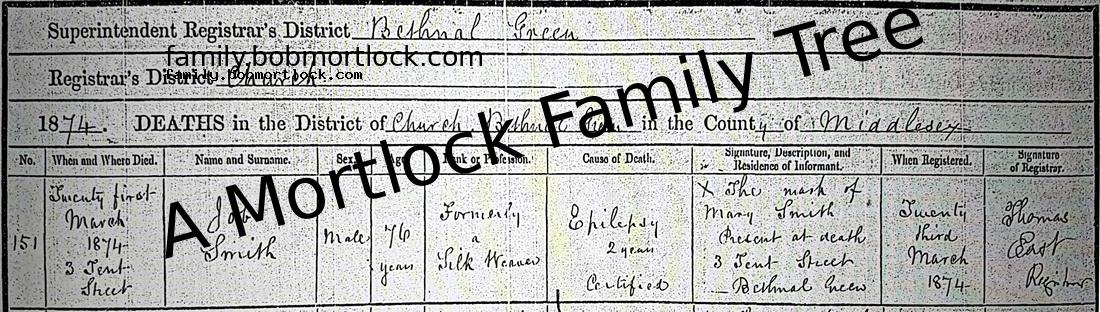 Superintendent Registrar's District Bethnal Green
family.bobmortlock.com
Registrar's District Church
family.bobmortlock.com
A Mortlock Family Tree
1874. DEATHS in the District of Church Bethnal Green in the County of Middlesex
No. When and Where Died. Name and Surname. Sex. Age. Rank or Profession. Cause of Death. Signature, Description, and Residence of Informant. When Registered. Signature of Registrar.
151
Twenty first
March
1874
3 Tent
Street
Job
Smith
Male
76
years
Formerly
a
Silk Weaver
Epilepsy
2 years
Certified
X The mark of
Mary Smith
Present at death
3 Tent Street
Bethnal Green
Twenty
third
March
1874
Thomas
East
Registrar